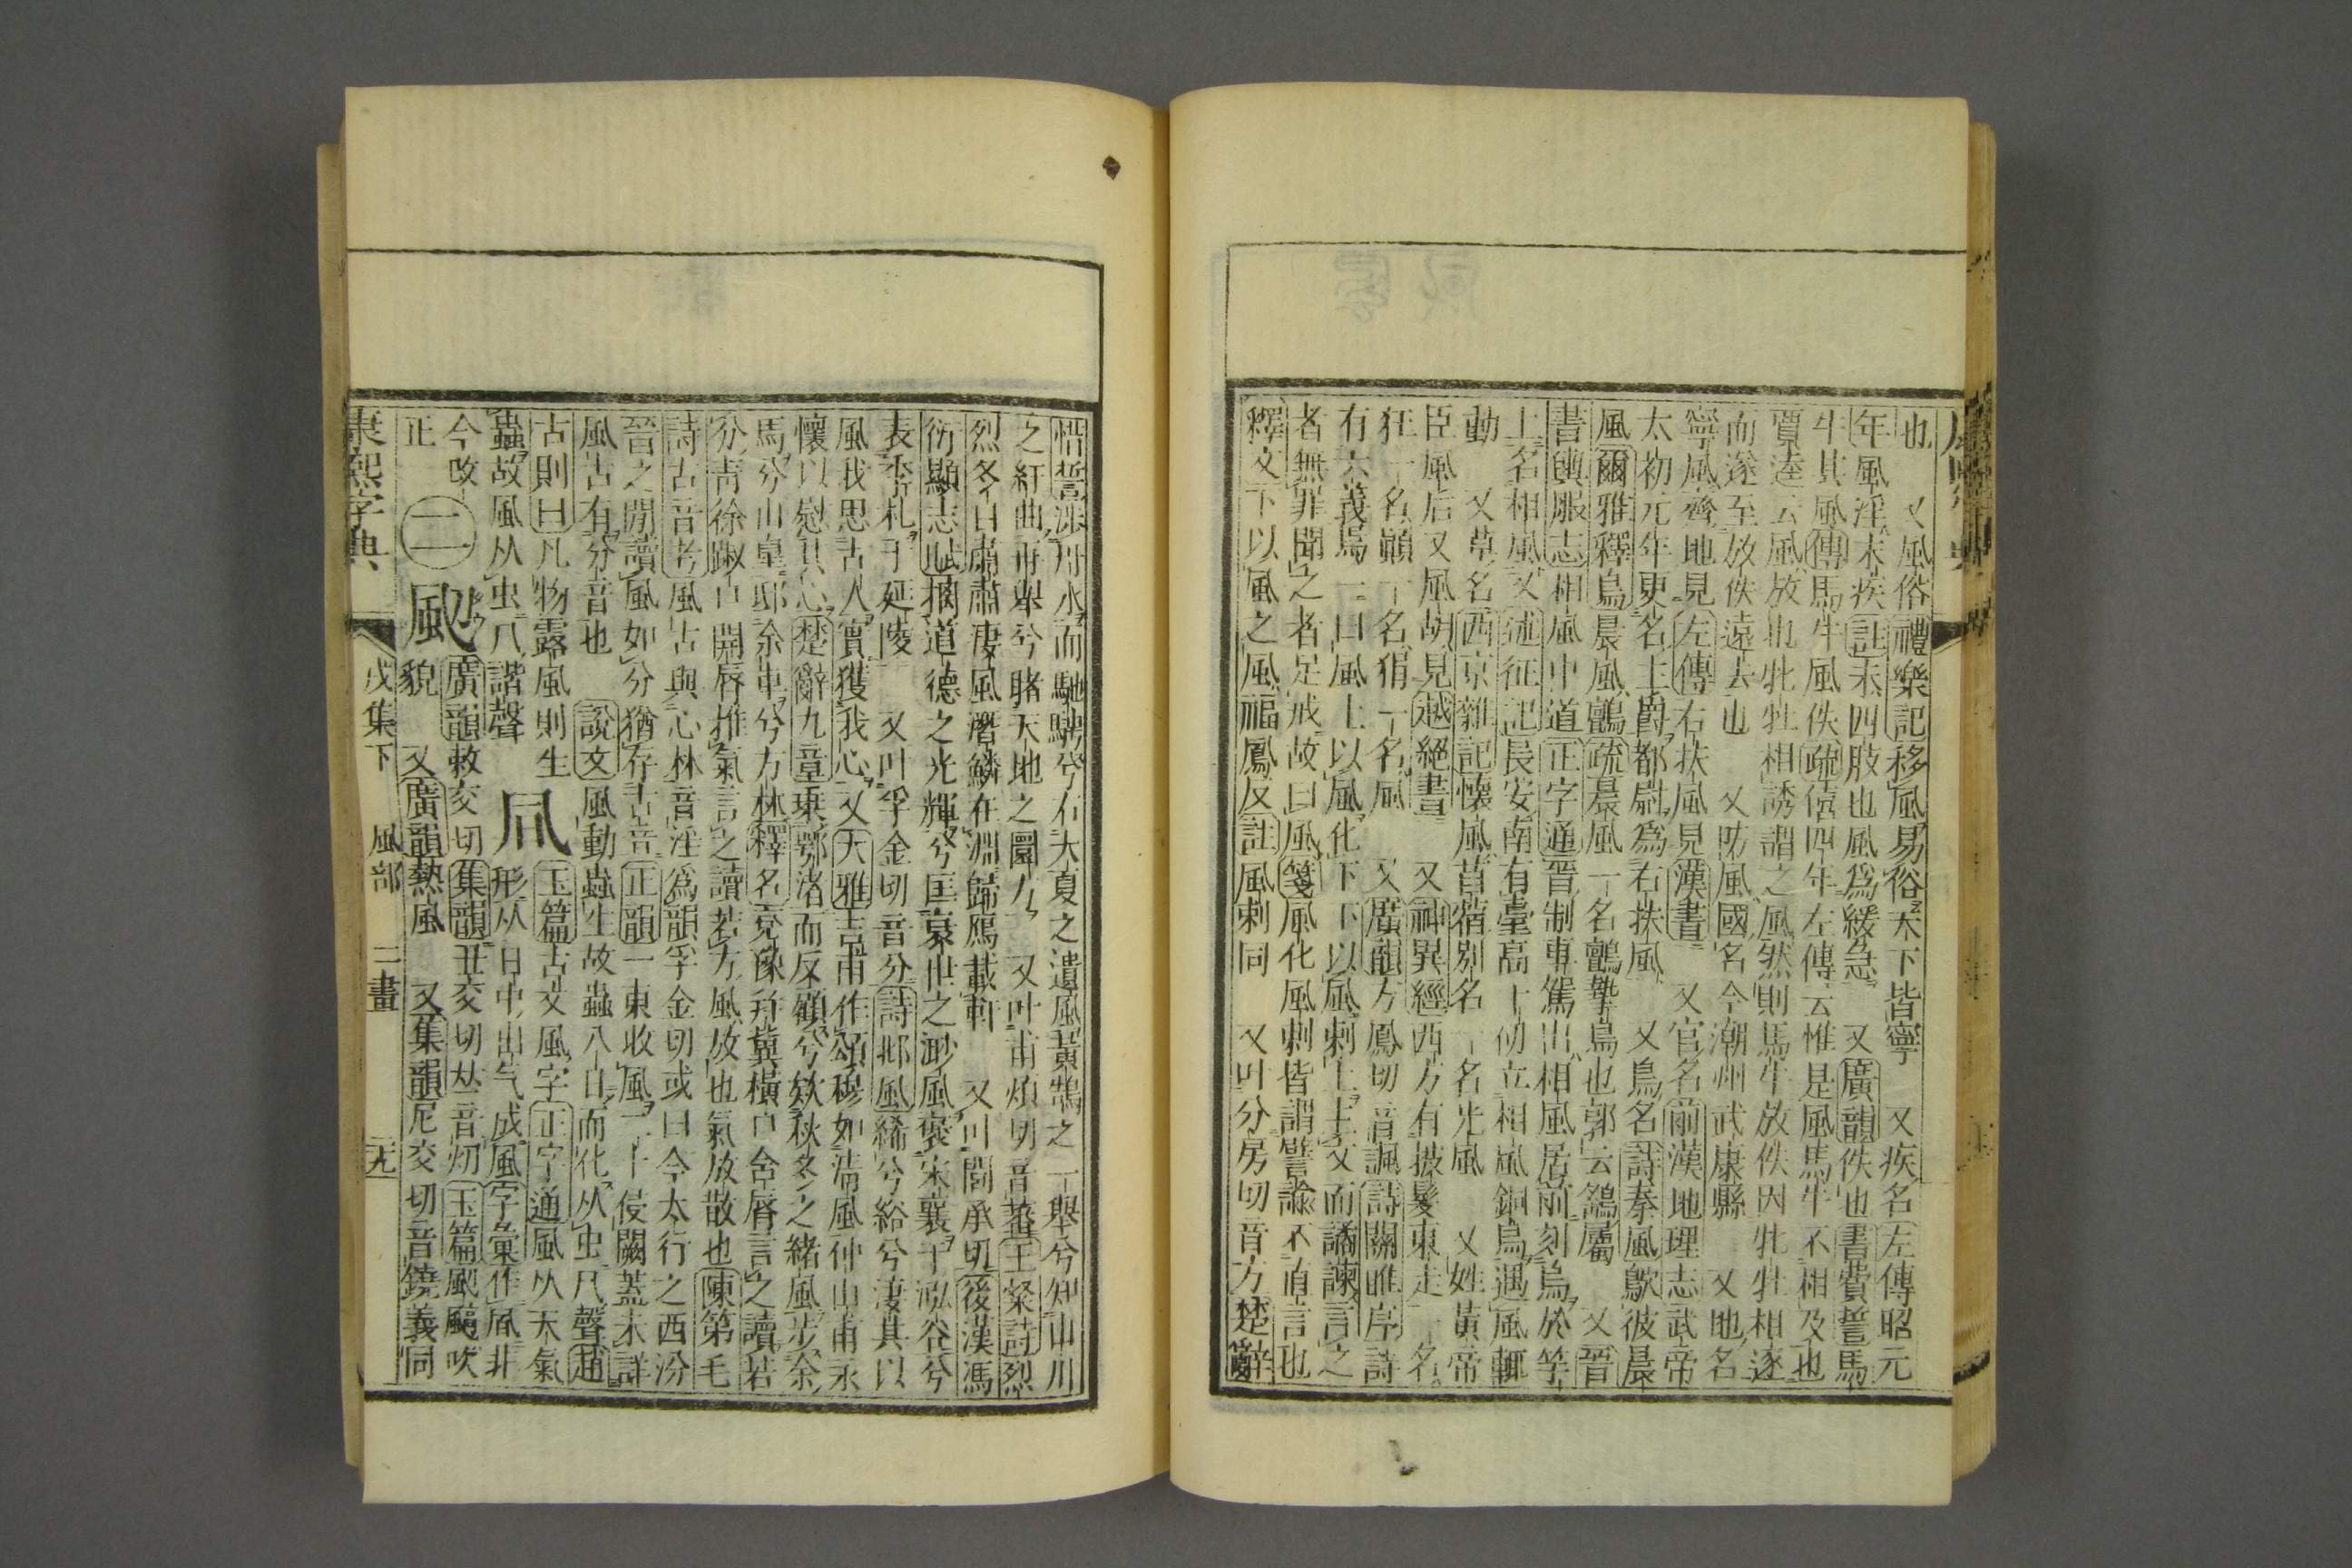 也　又風俗禮樂記移風易俗天下皆寧　又疾名左傳昭元
年風淫末疾註末四肢也風爲緩急　又廣韻佚也書費誓馬
牛其風傳馬牛風佚疏僖四年左傳云惟是風馬牛不相及也
賈逵云風放也牝牡相誘謂之風然則馬牛放佚因牝牡相逐
而遂至放佚遠去也　又防風國名今潮州武康縣　又地名
寧風齊地見左傳右扶風見漢書　又官名前漢地理志武帝
太初元年更名主爵都尉爲右扶風　又鳥名詩秦風鴥彼晨
風爾雅釋鳥晨風鸇疏晨風一名鸇摯鳥也郭云鷂屬　又晉
書輿服志相風中道正字通晉制車駕出相風居前刻烏於竿
上名相風又述征記長安南有臺高十仞立相風銅烏遇風輒
動　又草名西京雜記懷風苜蓿別名一名光風　又姓黃帝
臣風后又風胡見越絕書　又神異經西方有披髮東走一名
狂一名顚一名狷一名風　又廣韻方鳳切音諷詩關雎序詩
有六義焉一曰風上以風化下下以風刺上主文而譎諫言之
者無罪聞之者足戒故曰風箋風化風刺皆謂譬諭不直言也
釋文下以風之風福鳳反註風刺同　又叶分房切音方楚辭
惜誓涉丹水而馳騁兮右大夏之遺風黃鵠之一舉兮知山川
之紆曲再舉兮睹天地之圜方　又叶甫煩切音蕃王粲詩烈
烈冬日肅肅淒風潛鱗在淵歸鴈載軒　又叶閻承切後漢馮
衍顯志賦摛道德之光輝兮匡衰世之渺風褒宋襄于泓谷兮
表季札于延陵　又叶孚金切音分詩邶風絺兮綌兮淒其以
風我思古人實獲我心又大雅吉甫作頌穆如淸風仲山甫永
懷以慰其心楚辭九章乗鄂渚而反顧兮欸秋冬之緒風步余
馬兮山皐邸余車兮方林釋名兗豫幷冀橫口合脣言之讀若
分靑徐踧口開脣推氣言之讀若方風放也氣放散也陳第毛
詩古音考風古與心林音淫爲韻孚金切或曰今太行之西汾
晉之閒讀風如分猶存古音正韻一東收風二十侵闕蓋未詳
風古有分音也　說文風動蟲生故蟲八日而化从虫凡聲趙
古則曰凡物露風則生　凬玉篇古文風字正字通風从天氣
蟲故風从虫凡諧聲　形从日中出气成風字彙作凬非
今改　廣韻敕交切集韻丑交切𠀤音㓟玉篇颭飍吹
正　二　𩖗　貌　又廣韻熱風　又集韻尼交切音鐃義同
康熙字典　戌集下　風部　二畫　一九